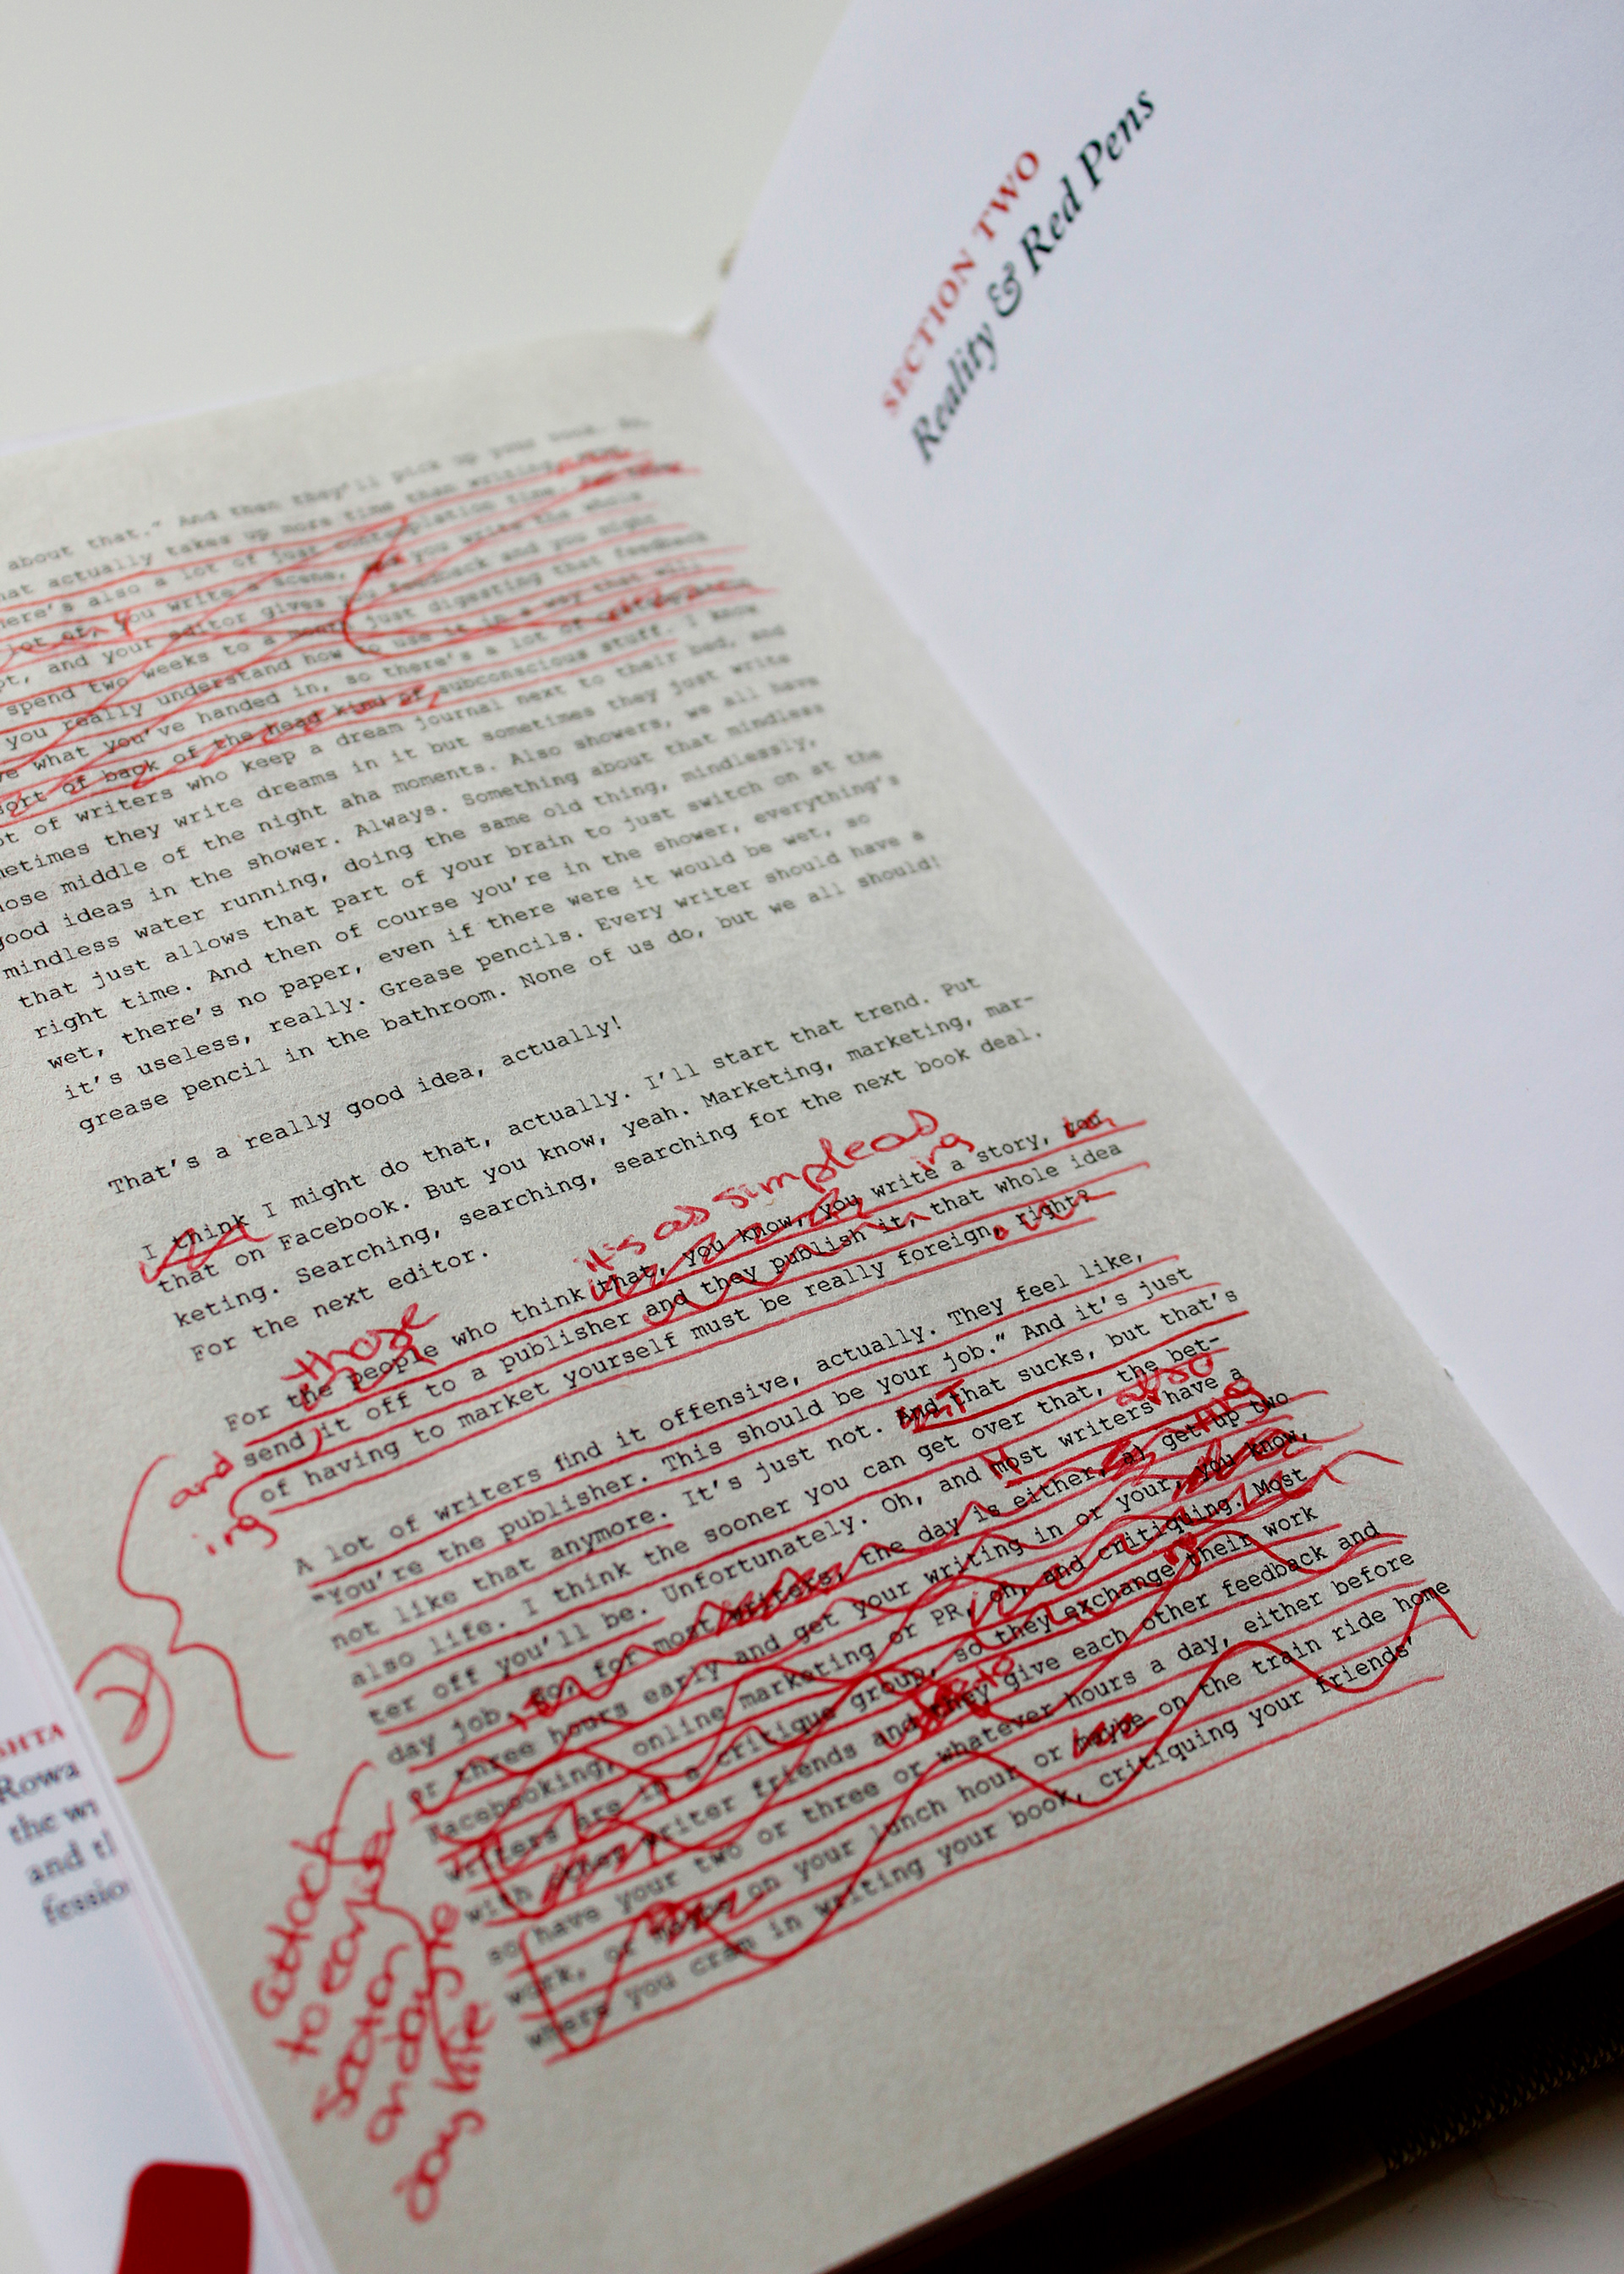 about that." And then they'll pick up your book. So,
that actually takes up more time than writing,
there's also a lot of just contemplation time.
lot of, you write a scene, you write the whole
, and your editor gives you feedback and you might
spend two weeks to a month just digesting that feedback
you really understand how to use it in a way that will
what you've handed in, so there's a lot of
sort of back of the head kind of, subconscious stuff. I know
of writers who keep a dream journal next to their bed, and
sometimes they write dreams in it but sometimes they just write
those middle of the night aha moments. Also showers, we all have
good ideas in the shower. Always. Something about that mindless
mindless water running, doing the same old thing, mindlessly,
that just allows that part of your brain to just switch on at the
right time. And then of course you're in the shower, everything's
wet, there's no paper, even if there were it would be wet, so
it's useless, really. Grease pencils. Every writer should have a
grease pencil in the bathroom. None of us do, but we all should!
That's a really good idea, actually!
I think I might do that, actually. I'll start that trend. Put
that on Facebook. But you know, yeah. Marketing, marketing, mar-
keting. Searching, searching, searching for the next book deal.
For the next editor.
it's as simple as
ing
those
For the people who think that, you know, you write a story, you
and
send it off to a publisher and they publish it, that whole idea
ing
of having to market yourself must be really foreign, right?
A lot of writers find it offensive, actually. They feel like,
"You're the publisher. This should be your job." And it's just
not like that anymore. It's just not. And that sucks, but that's
but
also life. I think the sooner you can get over that, the bet-
also
ter off you'll be. Unfortunately. Oh, and most writers have a
day job, so, for most writers, the day is either, a) get up two
or three hours early and get your writing in or your, you know,
Facebooking, online marketing or PR, oh, and critiquing. Most
writers are in a critique group, so they exchange their work
with other writer friends and they give each other feedback and
so have your two or three or whatever hours a day, either before
work, or maybe on your lunch hour or maybe on the train ride home
where you cram in writing your book, critiquing your friends'
attach
to earlier
section
on day to
day life
SECTION TWO
Reality & Red Pens
SHTA
Rowa
the wr
and tl
fessio